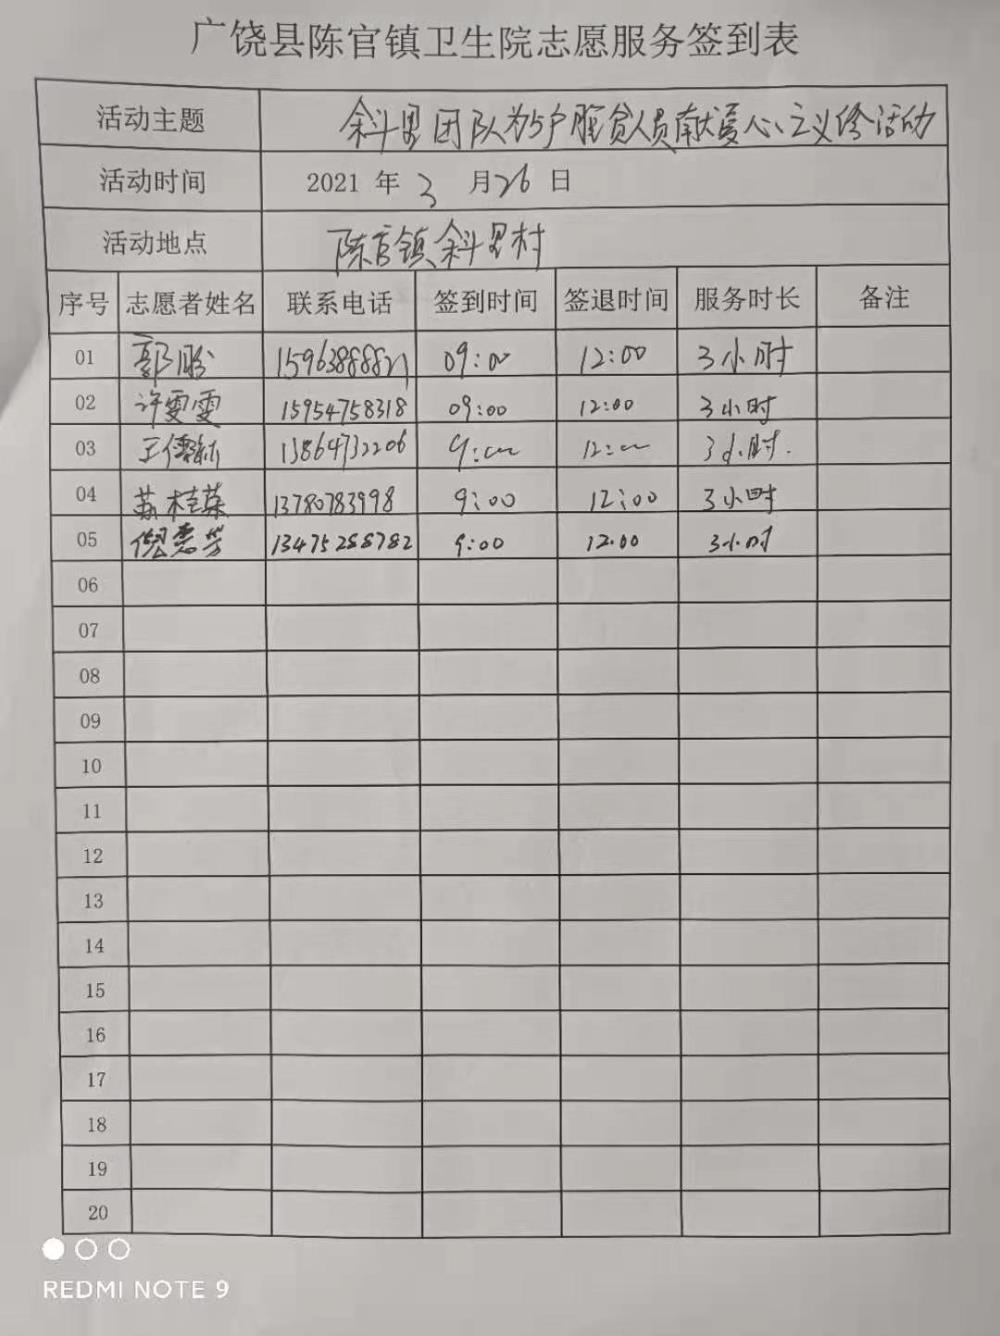 广饶县陈官镇卫生院志愿服务签到表
活动主题 斜里团队为5户脱贫人员献爱心、义诊活动
活动时间 2021 年 3 月 26 日
活动地点 陈官镇斜里村
序号 志愿者姓名 联系电话 签到时间 签退时间 服务时长 备注
01 郭盼 15963888821 09:00 12:00 3小时
02 许雯雯 15954758318 09:00 12:00 3小时
03 13864732206 9:00 12:00 3小时.
04 苏桂荣 13780783998 9:00 12:00 3小时
05 倪惠芳 13475288782 9:00 12:00 3小时
06
07
08
09
10
11
12
13
14
15
16
17
18
19
20
REDMI NOTE 9